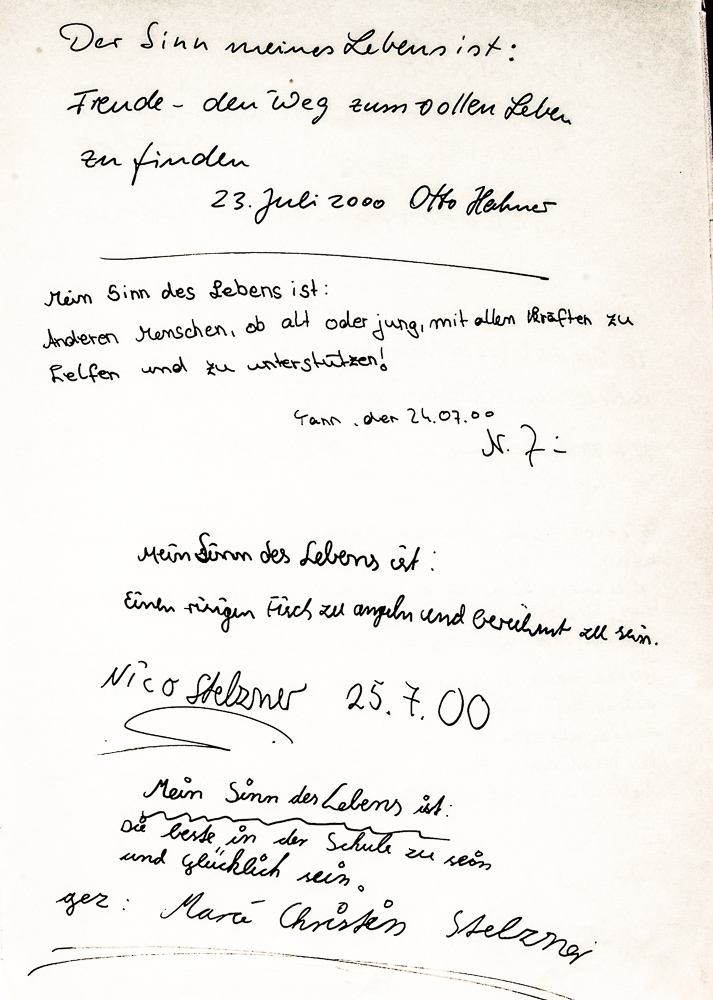 Der Sinn meines Lebens ist:
Freude - den Weg zum vollen Leben
zu finden
23. Juli 2000 Otto Hahner
Mein Sinn des Lebens ist:
Anderen Menschen, ob alt oder jung, mit allen Kräften zu
helfen und zu unterstützen!
Tann, der 24.07.00
N. 
Mein Sinn des Lebens ist:
Einen riesigen Fisch zu angeln und berühmt zu sein.
Nico Stelzner 25.7.00
Mein Sinn des Lebens ist:
Die beste in der Schule zu sein
und glücklich sein.
gez: Christin Stelzner